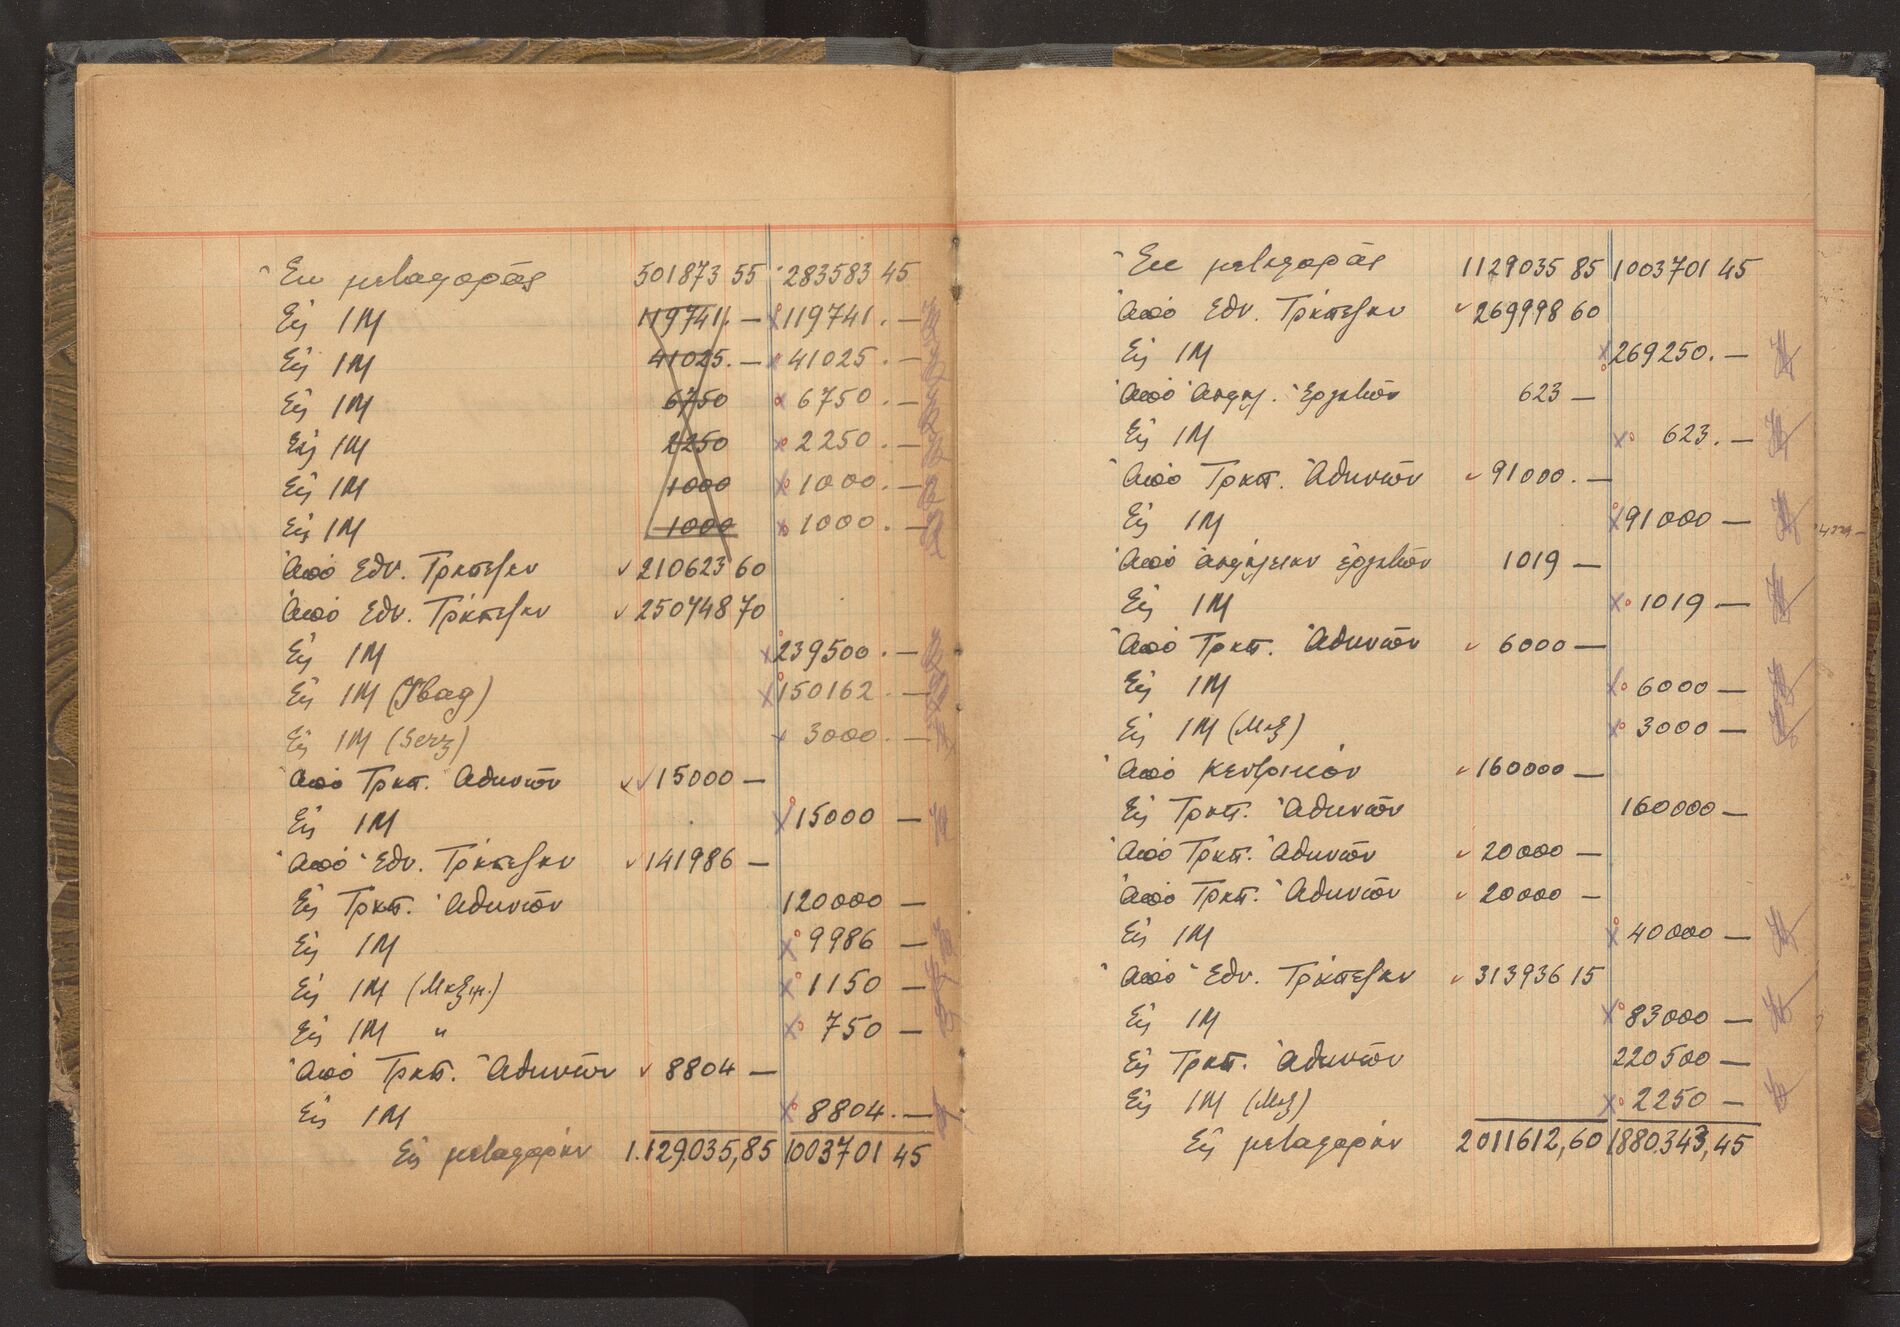 Εκ μεταφοράς 501873 55 283583 45
Εις ΙΜ 119741. — 119741. —
Εις ΙΜ 41025. — 41025. —
Εις ΙΜ 6750 6750. —
Εις ΙΜ 2250 2250. —
Εις ΙΜ 1000 1000. —
Εις ΙΜ 1000 1000. —
Από Εθν. Τράπεζαν 210623 60
Από Εθν. Τράπεζαν 250748 70
Εις ΙΜ 239500. —
Εις ΙΜ 150162. —
Εις ΙΜ 3000. —
Από Τραπ. Αθηνών 15000 —
Εις ΙΜ 15000 —
Από Εθν. Τράπεζαν 141986 —
Εις Τραπ. Αθηνών 120000 —
Εις ΙΜ 9986 —
Εις ΙΜ 1150 —
Εις ΙΜ " 750 —
Από Τραπ. Αθηνών 8804 —
Εις ΙΜ 8804. —
Εις μεταφοράν 1.129.035,85 1003701 45
Εκ μεταφοράς 1129035 85 1003701 45
Από Εθν. Τράπεζαν 269998 60
Εις ΙΜ 269250. —
Από Ασφαλ. Εργατών 623 —
Εις ΙΜ 623. —
Από Τραπ. Αθηνών 91000. —
Εις ΙΜ 91000 —
Από Ασφάλειαν εργατών 1019 —
Εις ΙΜ 1019 —
Από Τραπ. Αθηνών 6000 —
Εις ΙΜ 6000 —
Εις ΙΜ (Μαξ) 3000 —
Από Κεντρικόν 160000 —
Εις Τραπ. Αθηνών 160000 —
Από Τραπ. Αθηνών 20000 —
Από Τραπ. Αθηνών 20000 —
Εις ΙΜ 40000 —
Από Εθν. Τράπεζαν 313936 15
Εις ΙΜ 83000 —
Εις Τραπ. Αθηνών 220500 —
Εις ΙΜ (Μαξ) 2250 —
Εις μεταφοράν 2011612,60 1880.343,45